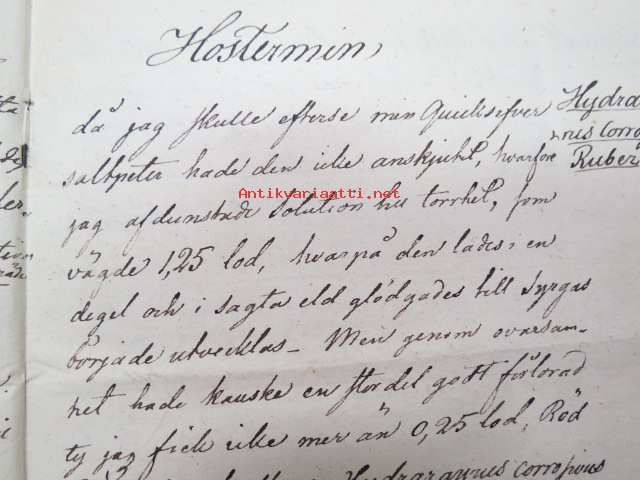 Höstermin,
då jag skulle efterse min Quicksifver
saltpeter hade den icke anskjuhl, hvarfore
jag afdunstade Solution till torrhet, som
vägde 1,25 lod, hvarpå den lades i en
degel och i sagta eld glödgades till Syrgas
började utvecklas – Men genom ovarsam-
het hade kanske en stor del gått förlorad
ty jag fick icke mer än 0,25 lod, Röd
Hydrargyrus corrosivus
Hydrar
rus Corro
Ruber
Antikvariaatti.net